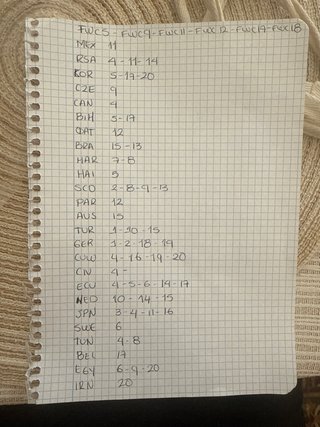 FWC5 - FWC9 - FWC11 - FWC12 - FWC17 - FWC18
MEX 11
RSA 4 - 11 - 14
KOR 5 - 17 - 20
CZE 9
CAN 4
BIH 5 - 17
QAT 12
BRA 15 - 13
MAR 7 - 8
HAI 5
SCO 2 - 8 - 9 - 13
PAR 12
AUS 15
TUR 1 - 10 - 15
GER 1 - 2 - 18 - 19
CUW 4 - 16 - 19 - 20
CIV 4 -
ECU 4 - 5 - 6 - 14 - 17
NED 10 - 14 - 15
JPN 3 - 4 - 11 - 16
SWE 6
TUN 4 - 8
BEL 17
EGY 6 - 9 - 20
IRN 20